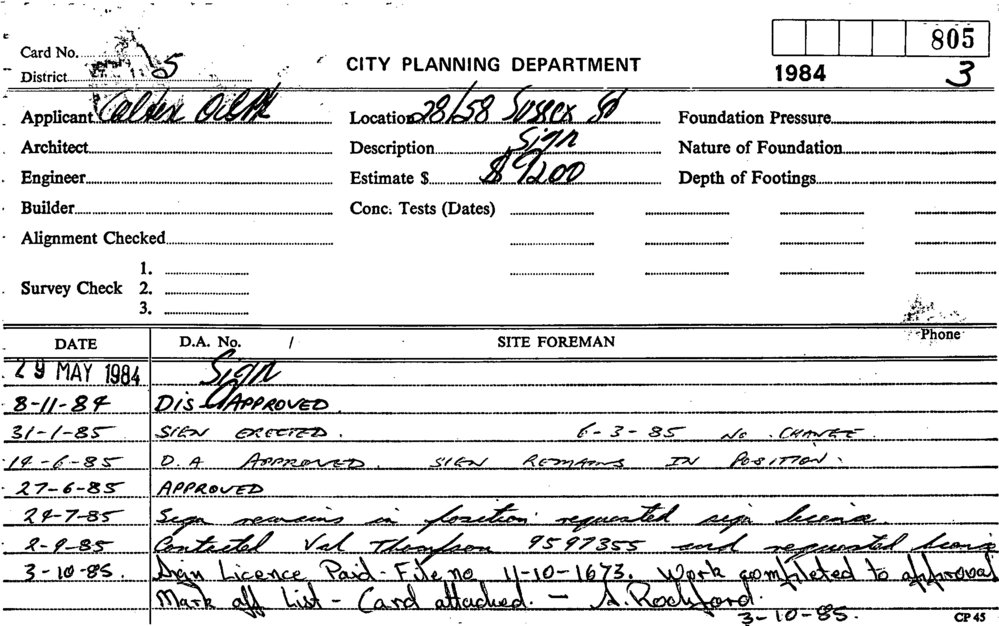 Card No.
805
CITY PLANNING DEPARTMENT
District 5
1984 3
Applicant Caltex Oil
Location 28/58 Sussex St
Foundation Pressure
Architect
Description Sign
Nature of Foundation
Engineer
Estimate $ $9200
Depth of Footings
Builder
Conc. Tests (Dates)
Alignment Checked
1.
Survey Check 2.
3.
Phone
DATE D.A. No. / SITE FOREMAN
29 MAY 1984 Sign
8-11-84 DISAPPROVED.
31-1-85 SIGN ERECTED. 6-3-85 NO CHANGE.
14-6-85 D.A APPROVED. SIGN REMAINS IN POSITION.
27-6-85 APPROVED
24-7-85 Sign remains in position requested sign licence.
2-9-85 Contacted Val Thompson 9597355 and requested licence
3-10-85. Sign Licence Paid - File no 11-10-1673. Work completed to approval
Mark off List - Card attached. - A. Rochford.
3-10-85.
CP 45